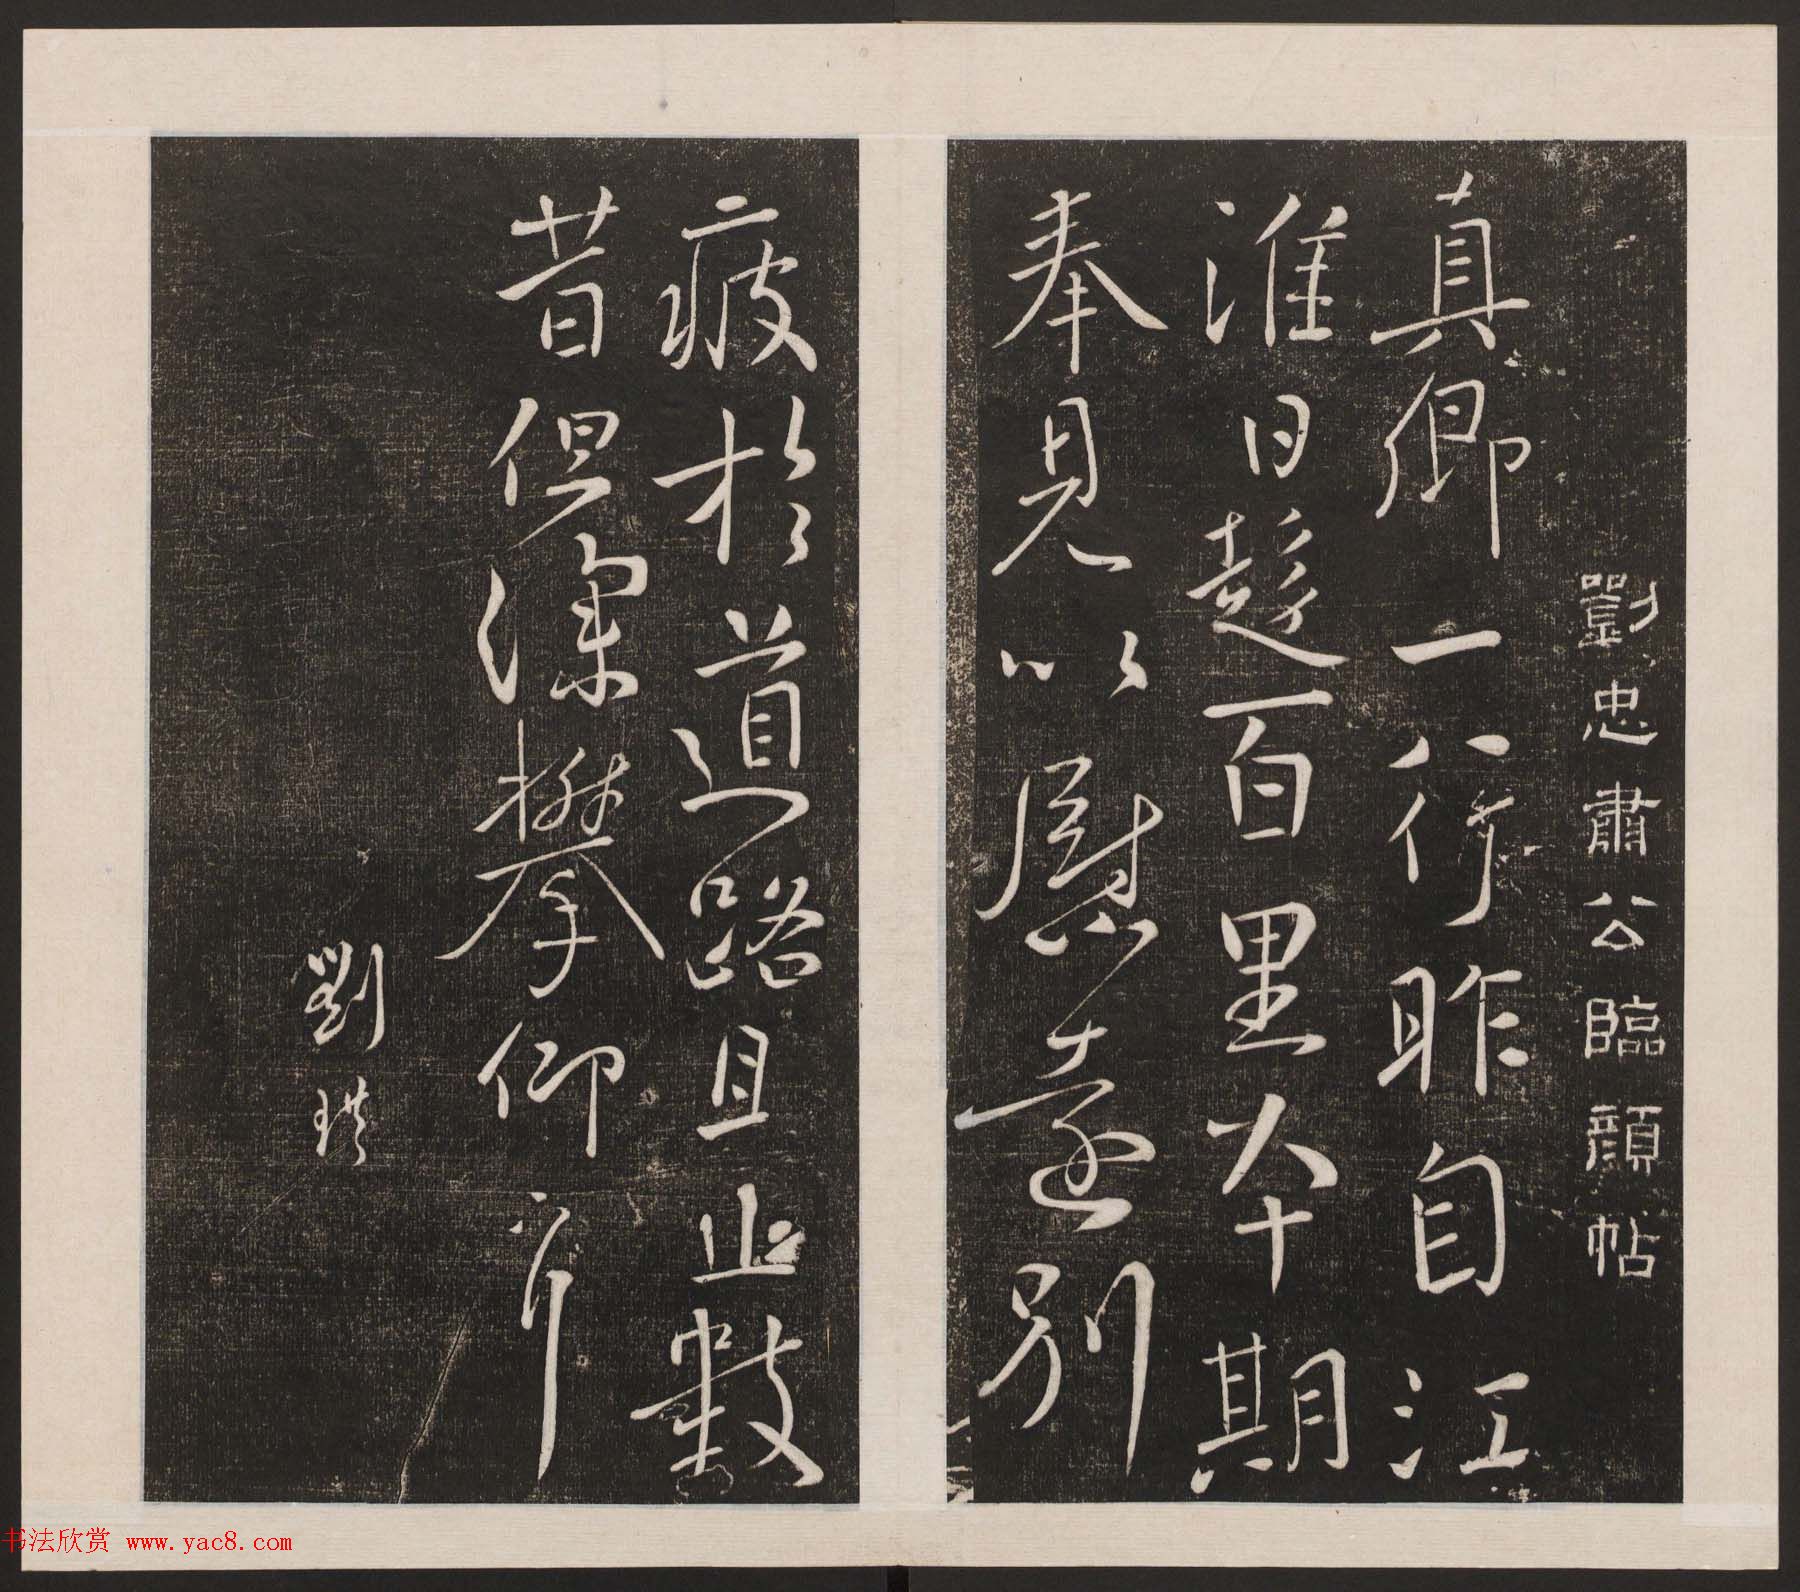 劉忠肅公臨顏帖
真卿一行昨自江
淮日趍百里本期
奉見以慰遠別
疲於道路且止數
昔但深攀仰
劉珙
书法欣赏 www.yac8.com